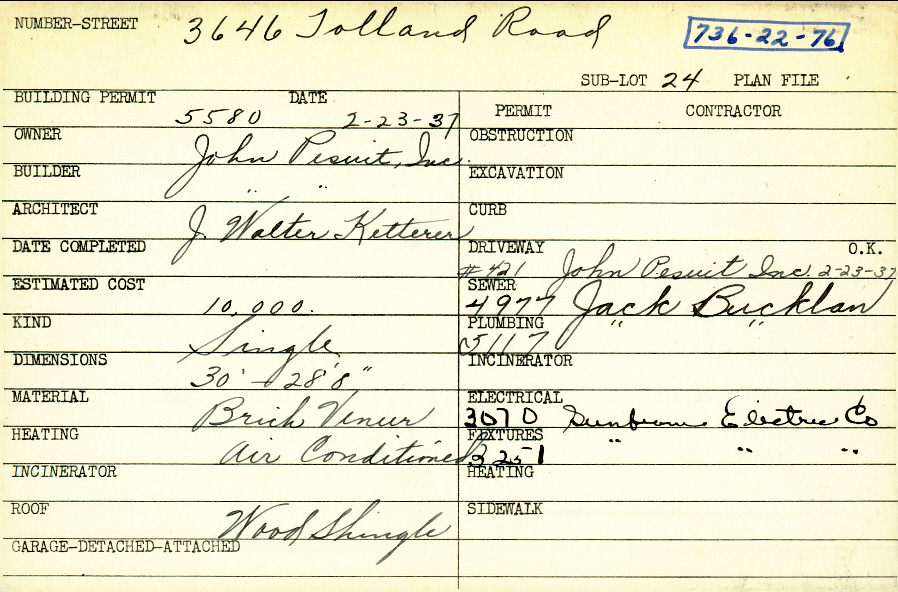 NUMBER-STREET 3646 Tolland Road 736-22-76
SUB-LOT 24 PLAN FILE
BUILDING PERMIT 5580 DATE 2-23-37
PERMIT CONTRACTOR
OWNER John Pesuit, Inc.
OBSTRUCTION
BUILDER " "
EXCAVATION
ARCHITECT J. Walter Ketterer
CURB
DATE COMPLETED
DRIVEWAY #421 John Pesuit Inc. 2-23-37 O.K.
ESTIMATED COST 10,000.
SEWER 4977 Jack Bucklan
KIND Single
PLUMBING 5117 " "
DIMENSIONS 30' - 28'8"
INCINERATOR
MATERIAL Brick Veneer
ELECTRICAL 3070 Sunbeam Electric Co
HEATING Air Conditioned
FIXTURES 3251 " " "
INCINERATOR
HEATING
ROOF Wood Shingle
SIDEWALK
GARAGE-DETACHED-ATTACHED